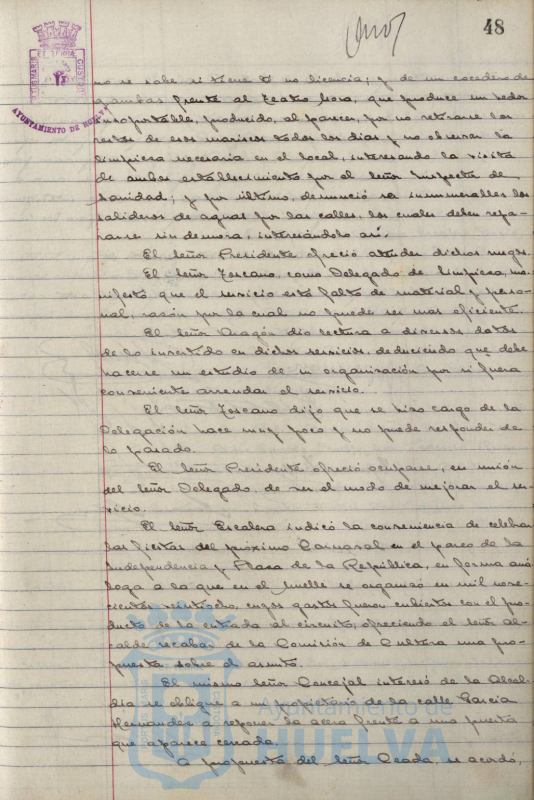 48
AYUNTAMIENTO DE HUELVA
no se sabe si tiene o no licencia; y de un cocedero de
gambas frente al Teatro Mora, que produce un hedor
insoportable, producido, al parecer, por no retirarse los
restos de esos mariscos todos los dias y no observar la
limpieza necesaria en el local, interesando la visita
de ambos establecimientos por el señor Inspector de
Sanidad; y por último, denunció los innumerables
salideros de aguas por las calles, los cuales deben repa-
rarse sin demora, interesándolo asi.
El Señor Presidente ofreció atender dichos ruegos.
El Señor Toscano, como Delegado de limpieza, ma-
nifestó que el servicio está falto de material y perso-
nal, razón por la cual no puede ser mas eficiente.
El Señor Aragón dio lectura a diversos datos
de lo invertido en dichos servicios, deduciendo que debe
hacerse un estudio de su organización por si fuera
conveniente arrendar el servicio.
El Señor Toscano dijo que se hizo cargo de la
Delegación hace muy poco y no puede responder de
lo pasado.
El Señor Presidente ofreció ocuparse, en unión
del Señor Delegado, de ver el modo de mejorar el ser-
vicio.
El Señor Escalera indicó la conveniencia de celebrar
las fiestas del próximo Carnaval en el paseo de la
Independencia y Plaza de la República, en forma aná-
loga a la que en el muelle se organizó en mil nove-
cientos veintiocho, cuyos gastos fueron cubiertos con el pro-
ducto de la entrada al circuito, ofreciendo el señor Al-
calde recabar de la Comisión de Cultura una pro-
puesta sobre el asunto.
El mismo señor Concejal interesó de la Alcal-
día se obligue a un propietario de la calle Garcia
Hernandez a reponer la acera frente a una puerta
que aparece cerrada.
A propuesta del Señor Ceada, se acordó,
Ayuntamiento de
HUELVA